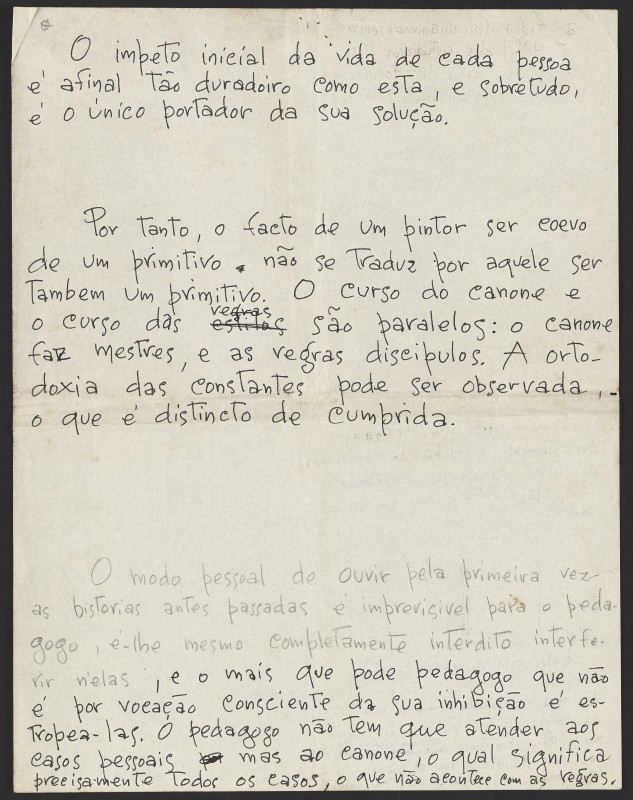 8
O impeto inicial da vida de cada pessoa
é afinal tão duradoiro como esta, e sobretudo,
é o único portador da sua solução.
Por tanto, o facto de um pintor ser coevo
de um primitivo não se traduz por aquele ser
tambem um primitivo. O curso do canone e
o curso das estilos regras são paralelos: o canone
faz mestres, e as regras discipulos. A orto-
doxia das constantes pode ser observada,
o que é distincto de cumprida.
O modo pessoal de ouvir pela primeira vez
as historias antes passadas é imprevisivel para o peda-
gogo, é-lhe mesmo completamente interdito interfe-
rir n'elas, e o mais que pode pedagogo que não
é por vocação consciente da sua inhibição é es-
tropea-las. O pedagogo não tem que atender aos
casos pessoais mas ao canone, o qual significa
precisamente todos os casos, o que não acontece com as regras.